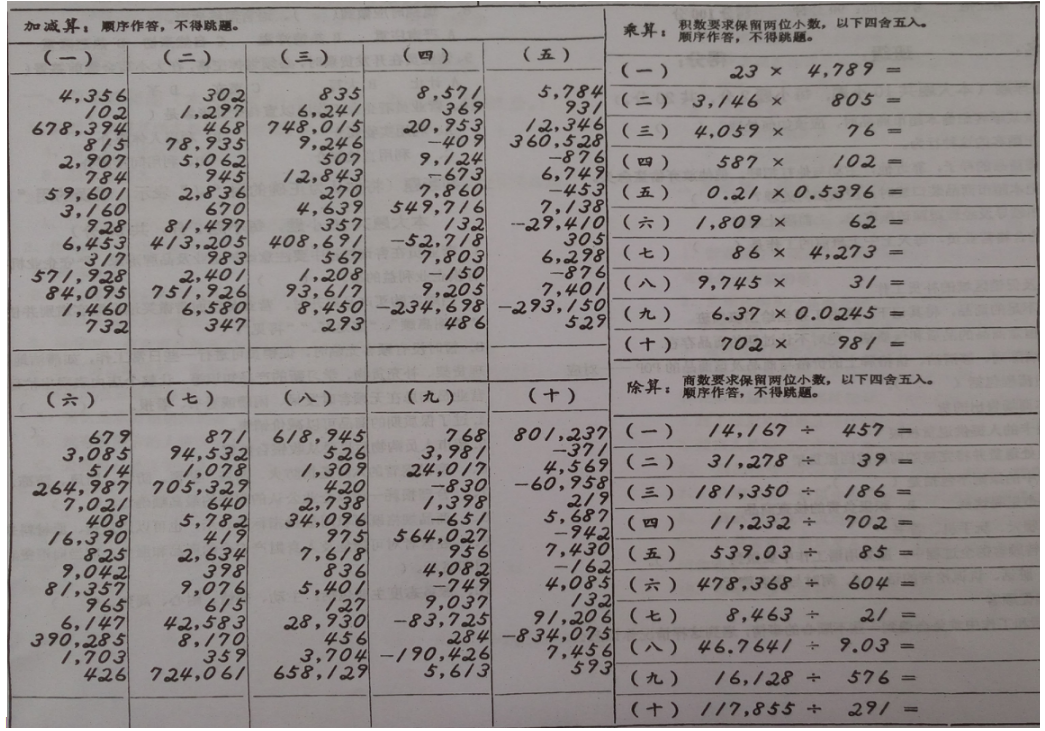 加减算：顺序作答，不得跳题。
（一） （二） （三） （四） （五）
4,356 302 835 8,571 5,784
102 1,297 6,241 369 931
678,394 468 748,015 20,953 12,346
815 78,935 9,246 -409 360,528
2,907 5,062 507 9,124 -876
784 945 12,843 -673 6,749
59,601 2,836 270 7,860 -453
3,160 670 4,639 549,716 7,138
928 81,497 357 132 -29,410
6,453 413,205 408,691 -52,718 305
317 983 567 7,803 6,298
571,928 2,401 1,208 -150 -876
84,095 751,926 93,617 9,205 7,401
1,460 6,580 8,450 -234,698 -293,150
732 347 293 486 529
（六） （七） （八） （九） （十）
679 871 618,945 768 801,237
3,085 94,532 526 3,981 -371
514 1,078 1,309 24,017 4,569
264,987 705,329 420 -830 -60,958
7,021 640 2,738 1,398 219
408 5,782 34,096 -651 5,687
16,390 419 975 564,027 -942
825 2,634 7,618 956 7,430
9,042 398 836 4,082 -162
81,357 9,076 5,401 -749 4,085
965 615 127 9,037 132
6,147 42,583 28,930 -83,725 91,206
390,285 8,170 456 284 -834,075
1,703 359 3,704 -190,426 7,456
426 724,061 658,129 5,613 593
乘算：积数要求保留两位小数，以下四舍五入。
顺序作答，不得跳题。
（一） 23 × 4,789 =
（二） 3,146 × 805 =
（三） 4,059 × 76 =
（四） 587 × 102 =
（五） 0.21 × 0.5396 =
（六） 1,809 × 62 =
（七） 86 × 4,273 =
（八） 9,745 × 31 =
（九） 6.37 × 0.0245 =
（十） 702 × 981 =
除算：商数要求保留两位小数，以下四舍五入。
顺序作答，不得跳题。
（一） 14,167 ÷ 457 =
（二） 31,278 ÷ 39 =
（三） 181,350 ÷ 186 =
（四） 11,232 ÷ 702 =
（五） 539.03 ÷ 85 =
（六） 478,368 ÷ 604 =
（七） 8,463 ÷ 21 =
（八） 46.7641 ÷ 9.03 =
（九） 16,128 ÷ 576 =
（十） 117,855 ÷ 291 =